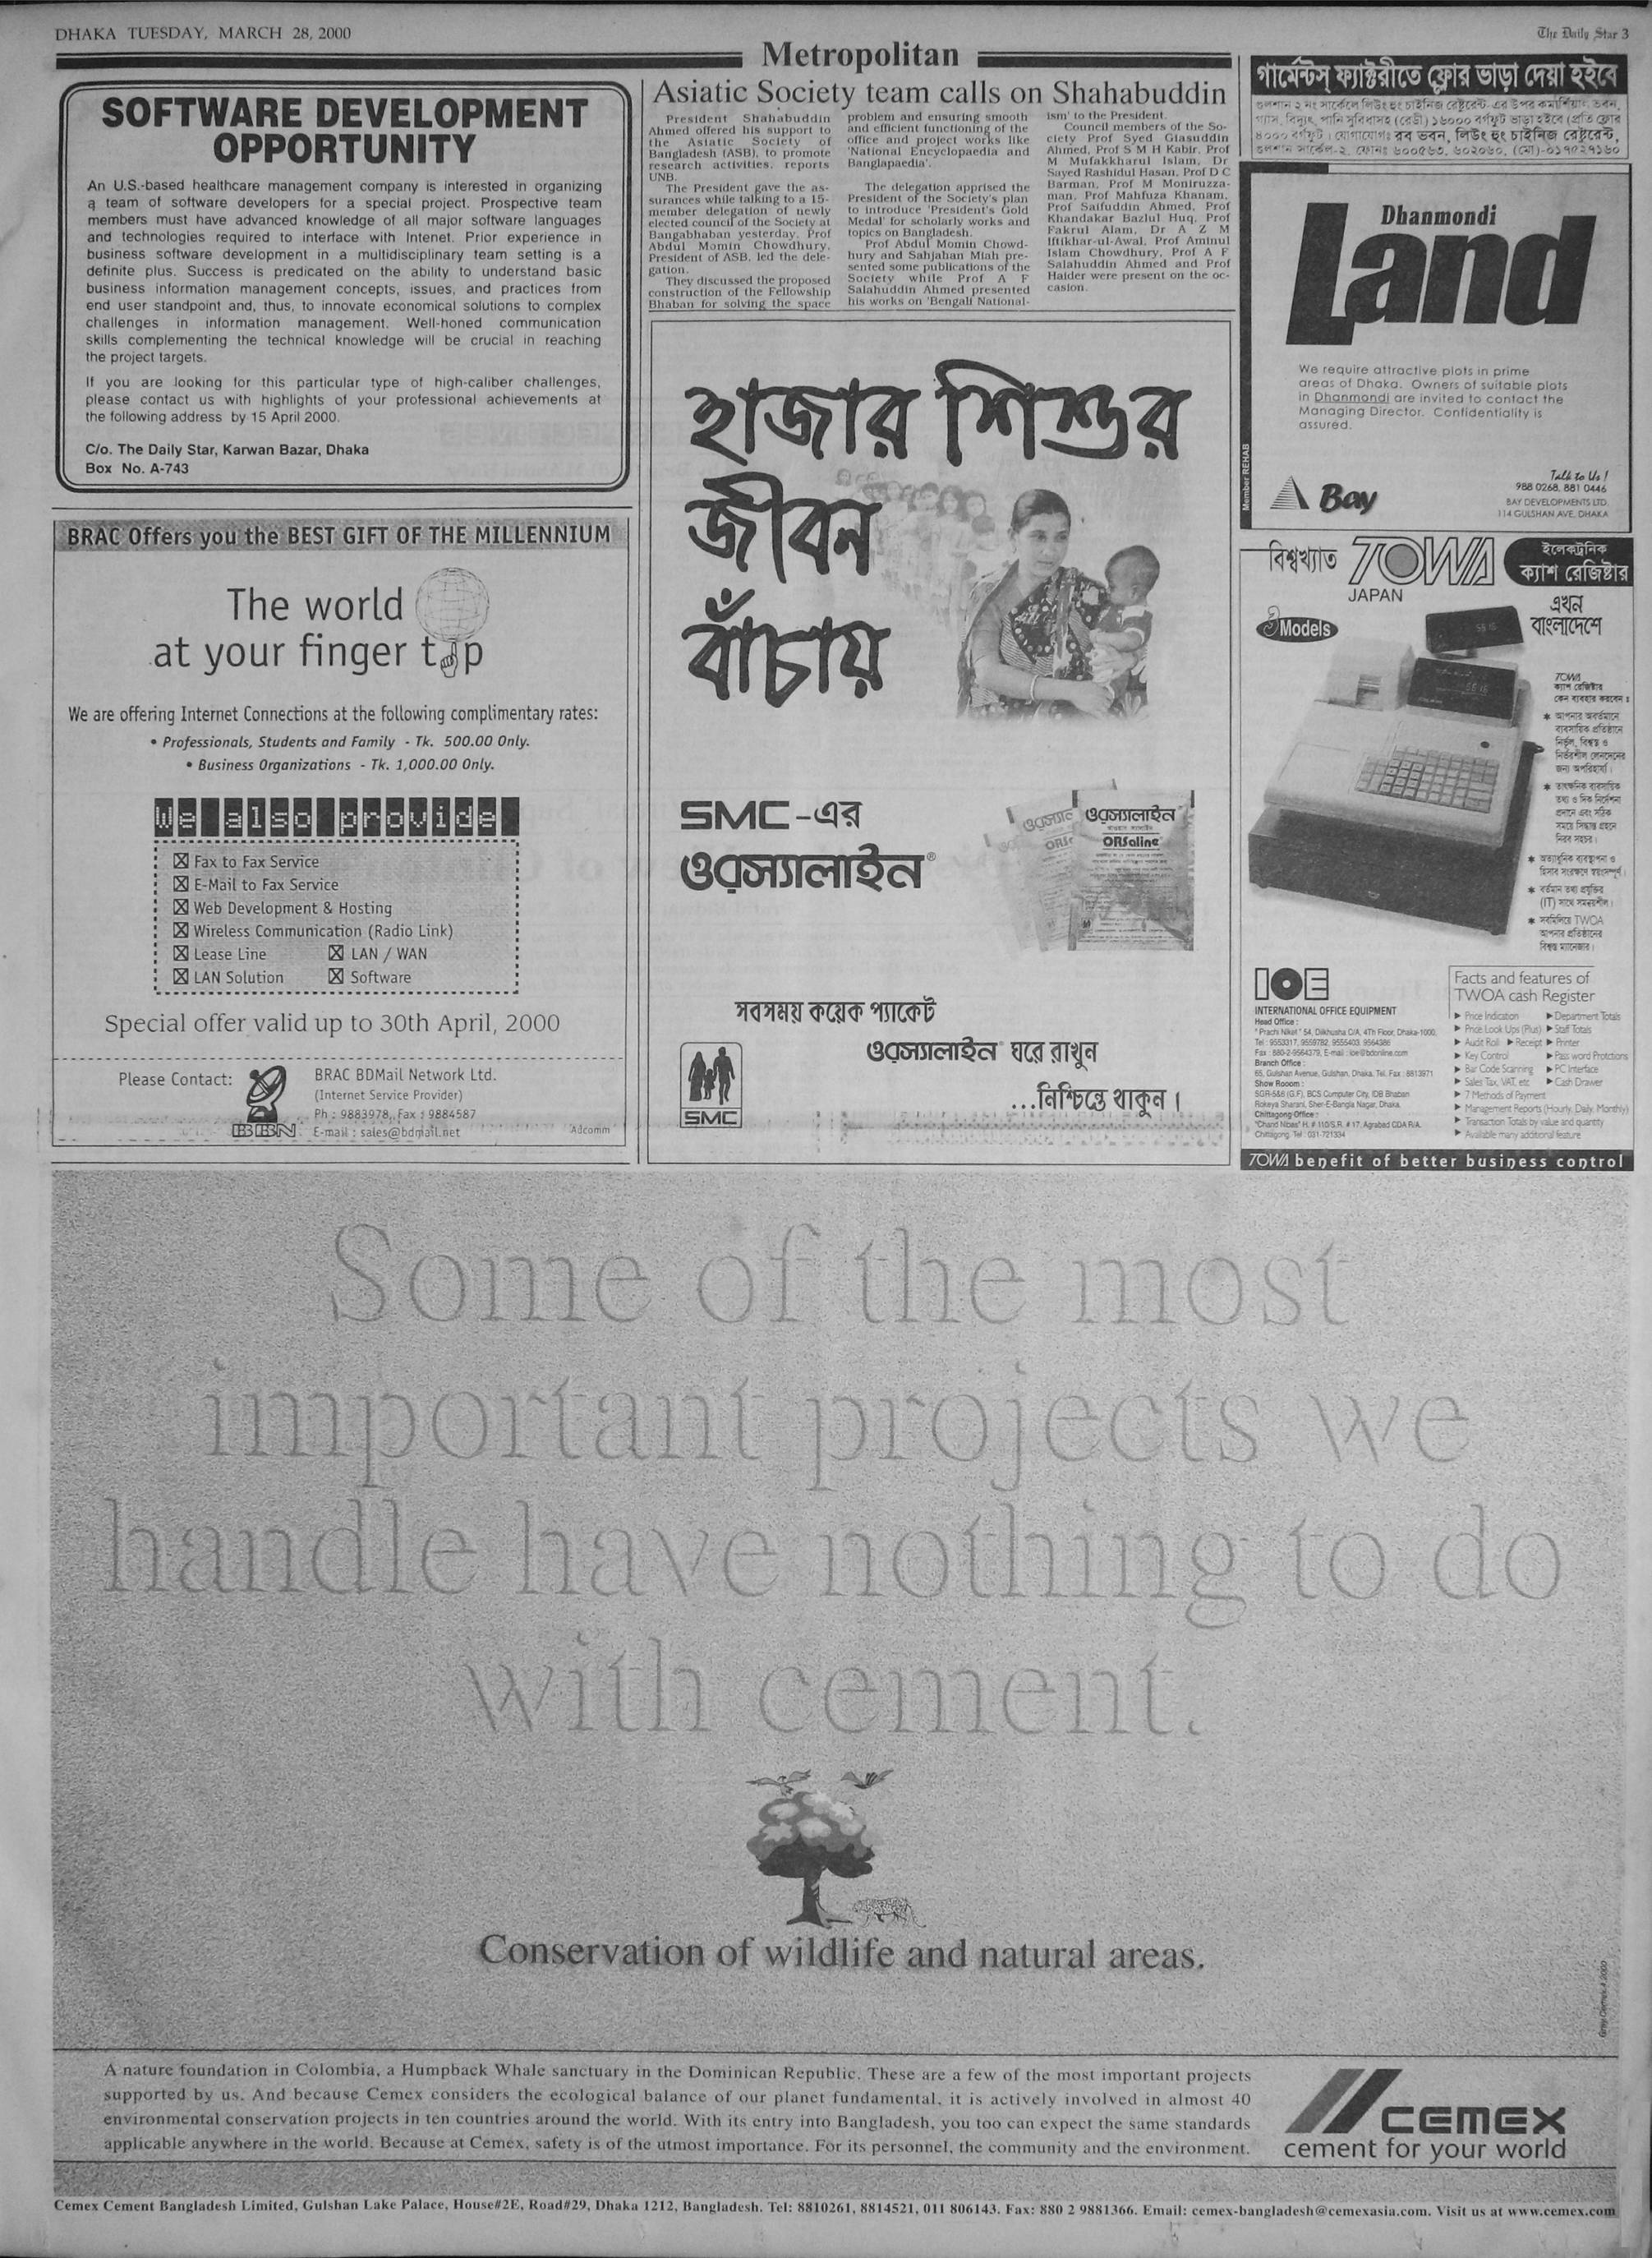 DHAKA TUESDAY, MARCH 28, 2000
The Daily Star 3
Metropolitan
SOFTWARE DEVELOPMENT
OPPORTUNITY
An U.S.-based healthcare management company is interested in organizing
a team of software developers for a special project. Prospective team
members must have advanced knowledge of all major software languages
and technologies required to interface with Intenet. Prior experience in
business software development in a multidisciplinary team setting is a
definite plus. Success is predicated on the ability to understand basic
business information management concepts, issues, and practices from
end user standpoint and, thus, to innovate economical solutions to complex
challenges in information management. Well-honed communication
skills complementing the technical knowledge will be crucial in reaching
the project targets.
If you are looking for this particular type of high-caliber challenges,
please contact us with highlights of your professional achievements at
the following address by 15 April 2000.
C/o. The Daily Star, Karwan Bazar, Dhaka
Box No. A-743
BRAC Offers you the BEST GIFT OF THE MILLENNIUM
The world
at your finger tip
We are offering Internet Connections at the following complimentary rates:
• Professionals, Students and Family - Tk. 500.00 Only.
• Business Organizations - Tk. 1,000.00 Only.
We also provide
Fax to Fax Service
E-Mail to Fax Service
Web Development & Hosting
Wireless Communication (Radio Link)
Lease Line LAN / WAN
LAN Solution Software
Special offer valid up to 30th April, 2000
Please Contact:
BRAC BDMail Network Ltd.
(Internet Service Provider)
Ph : 9883978, Fax : 9884587
E-mail : sales@bdmail.net
BBN
Adcomm
Asiatic Society team calls on Shahabuddin
President Shahabuddin
Ahmed offered his support to
the Asiatic Society of
Bangladesh (ASB), to promote
research activities, reports
UNB.
The President gave the as-
surances while talking to a 15-
member delegation of newly
elected council of the Society at
Bangabhaban yesterday. Prof
Abdul Momin Chowdhury,
President of ASB, led the dele-
gation.
They discussed the proposed
construction of the Fellowship
Bhaban for solving the space
problem and ensuring smooth
and efficient functioning of the
office and project works like
'National Encyclopaedia and
Banglapaedia'.
The delegation apprised the
President of the Society's plan
to introduce 'President's Gold
Medal' for scholarly works and
topics on Bangladesh.
Prof Abdul Momin Chowd-
hury and Sahjahan Miah pre-
sented some publications of the
Society while Prof A F
Salahuddin Ahmed presented
his works on 'Bengali National-
ism' to the President.
Council members of the So-
ciety Prof Syed Giasuddin
Ahmed, Prof S M H Kabir, Prof
M Mufakkharul Islam, Dr
Sayed Rashidul Hasan, Prof D C
Barman, Prof M Moniruzza-
man, Prof Mahfuza Khanam,
Prof Saifuddin Ahmed, Prof
Khandakar Bazlul Huq, Prof
Fakrul Alam, Dr A Z M
Iftikhar-ul-Awal, Prof Aminul
Islam Chowdhury, Prof A F
Salahuddin Ahmed and Prof
Haider were present on the oc-
casion.
হাজার শিশুর
জীবন
বাঁচায়
SMC-এর
ওরস্যালাইন®
ওরস্যালাইন
ORSaline
সবসময় কয়েক প্যাকেট
ওরস্যালাইন® ঘরে রাখুন
...নিশ্চিন্তে থাকুন।
SMC
গার্মেন্টস্ ফ্যাক্টরীতে ফ্লোর ভাড়া দেয়া হইবে
গুলশান ২ নং সার্কেলে লিউং হুং চাইনিজ রেষ্টুরেন্ট এর উপর কমার্শিয়াল ভবন,
গ্যাস, বিদ্যুৎ, পানি সুবিধাসহ (রেডী) ১৬০০০ বর্গফুট ভাড়া হইবে (প্রতি ফ্লোর
৪০০০ বর্গফুট। যোগাযোগঃ রব ভবন, লিউং হুং চাইনিজ রেষ্টুরেন্ট,
গুলশান সার্কেল-২, ফোনঃ ৬০০৫৬৩, ৬০২০৬০, (মো)-০১৭৫২৭১৬০
Dhanmondi
Land
We require attractive plots in prime
areas of Dhaka. Owners of suitable plots
in Dhanmondi are invited to contact the
Managing Director. Confidentiality is
assured.
Member REHAB
Bay
Talk to Us!
988 0268, 881 0446
BAY DEVELOPMENTS LTD.
114 GULSHAN AVE, DHAKA
বিশ্বখ্যাত TOWA
JAPAN
ইলেকট্রনিক
ক্যাশ রেজিষ্টার
এখন
বাংলাদেশে
9 Models
TOWA
ক্যাশ রেজিষ্টার
কেন ব্যবহার করবেন :
* আপনার অবর্তমানে
ব্যবসায়িক প্রতিষ্ঠানে
নির্ভুল, বিশ্বস্ত ও
নির্ভরশীল লেনদেনের
জন্য অপরিহার্য।
* তাৎক্ষনিক ব্যবসায়িক
তথ্য ও দিক নির্দেশনা
প্রদানে এবং সঠিক
সময়ে সিদ্ধান্ত গ্রহনে
নিরব সহচর।
* অত্যাধুনিক ব্যবস্থাপনা ও
হিসাব সংরক্ষণে স্বয়ংসম্পূর্ণ।
* বর্তমান তথ্য প্রযুক্তির
(IT) সাথে সমন্বয়শীল।
* সবমিলিয়ে TWOA
আপনার প্রতিষ্ঠানের
বিশ্বস্ত ম্যানেজার।
IOE
INTERNATIONAL OFFICE EQUIPMENT
Head Office :
"Prachi Niket" 54, Dilkhusha C/A, 4Th Floor, Dhaka-1000,
Tel : 9553317, 9559782, 9555403, 9564386
Fax : 880-2-9564379, E-mail : ioe@bdonline.com
Branch Office :
65, Gulshan Avenue, Gulshan, Dhaka, Tel, Fax : 8813971
Show Rooom :
SGR-5&8 (G.F), BCS Computer City, IDB Bhaban
Rokeya Sharani, Sher-E-Bangla Nagar, Dhaka,
Chittagong Office :
"Chand Nibas" H. # 110/S.R. # 17, Agrabad CDA R/A.
Chittagong. Tel : 031-721334
Facts and features of
TWOA cash Register
Price Indication Department Totals
Price Look Ups (Plus) Staff Totals
Audit Roll Receipt Printer
Key Control Pass word Protctions
Bar Code Scanning PC Interface
Sales Tax, VAT, etc Cash Drawer
7 Methods of Payment
Management Reports (Hourly, Daily, Monthly)
Transaction Totals by value and quantity
Available many additional feature
TOWA benefit of better business control
Some of the most
important projects we
handle have nothing to do
with cement.
Conservation of wildlife and natural areas.
A nature foundation in Colombia, a Humpback Whale sanctuary in the Dominican Republic. These are a few of the most important projects
supported by us. And because Cemex considers the ecological balance of our planet fundamental, it is actively involved in almost 40
environmental conservation projects in ten countries around the world. With its entry into Bangladesh, you too can expect the same standards
applicable anywhere in the world. Because at Cemex, safety is of the utmost importance. For its personnel, the community and the environment.
CEMEX
cement for your world
Cemex Cement Bangladesh Limited, Gulshan Lake Palace, House#2E, Road#29, Dhaka 1212, Bangladesh. Tel: 8810261, 8814521, 011 806143. Fax: 880 2 9881366. Email: cemex-bangladesh@cemexasia.com. Visit us at www.cemex.com